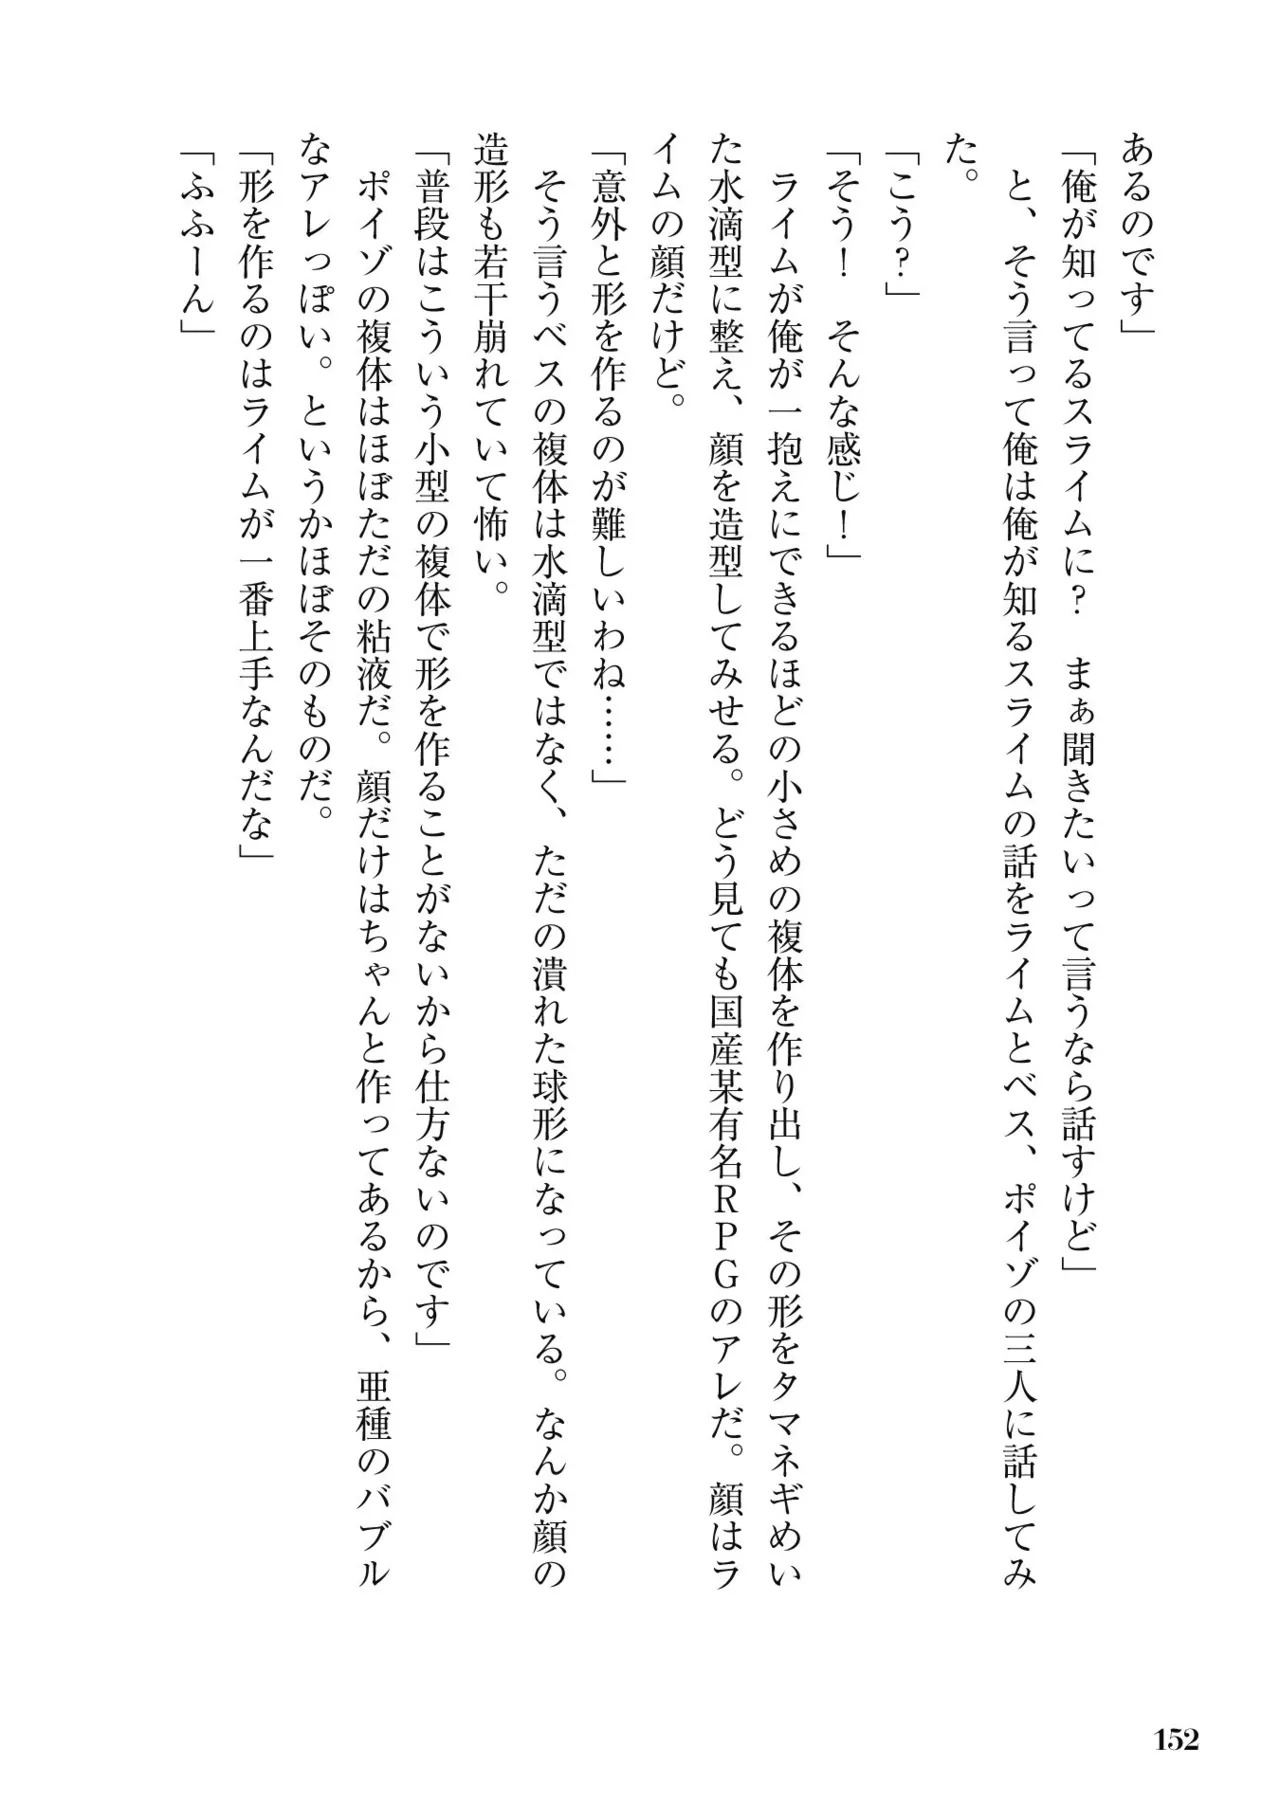 あるのです」
「俺が知ってるスライムに？　まぁ聞きたいって言うなら話すけど」
　と、そう言って俺は俺が知るスライムの話をライムとベス、ポイゾの三人に話してみ
た。
「こう？」
「そう！　そんな感じ！」
　ライムが俺が一抱えにできるほどの小さめの複体を作り出し、その形をタマネギめい
た水滴型に整え、顔を造型してみせる。どう見ても国産某有名ＲＰＧのアレだ。顔はラ
イムの顔だけど。
「意外と形を作るのが難しいわね……」
　そう言うベスの複体は水滴型ではなく、ただの潰れた球形になっている。なんか顔の
造形も若干崩れていて怖い。
「普段はこういう小型の複体で形を作ることがないから仕方ないのです」
　ポイゾの複体はほぼただの粘液だ。顔だけはちゃんと作ってあるから、亜種のバブル
なアレっぽい。というかほぼそのものだ。
「形を作るのはライムが一番上手なんだな」
「ふふーん」
152